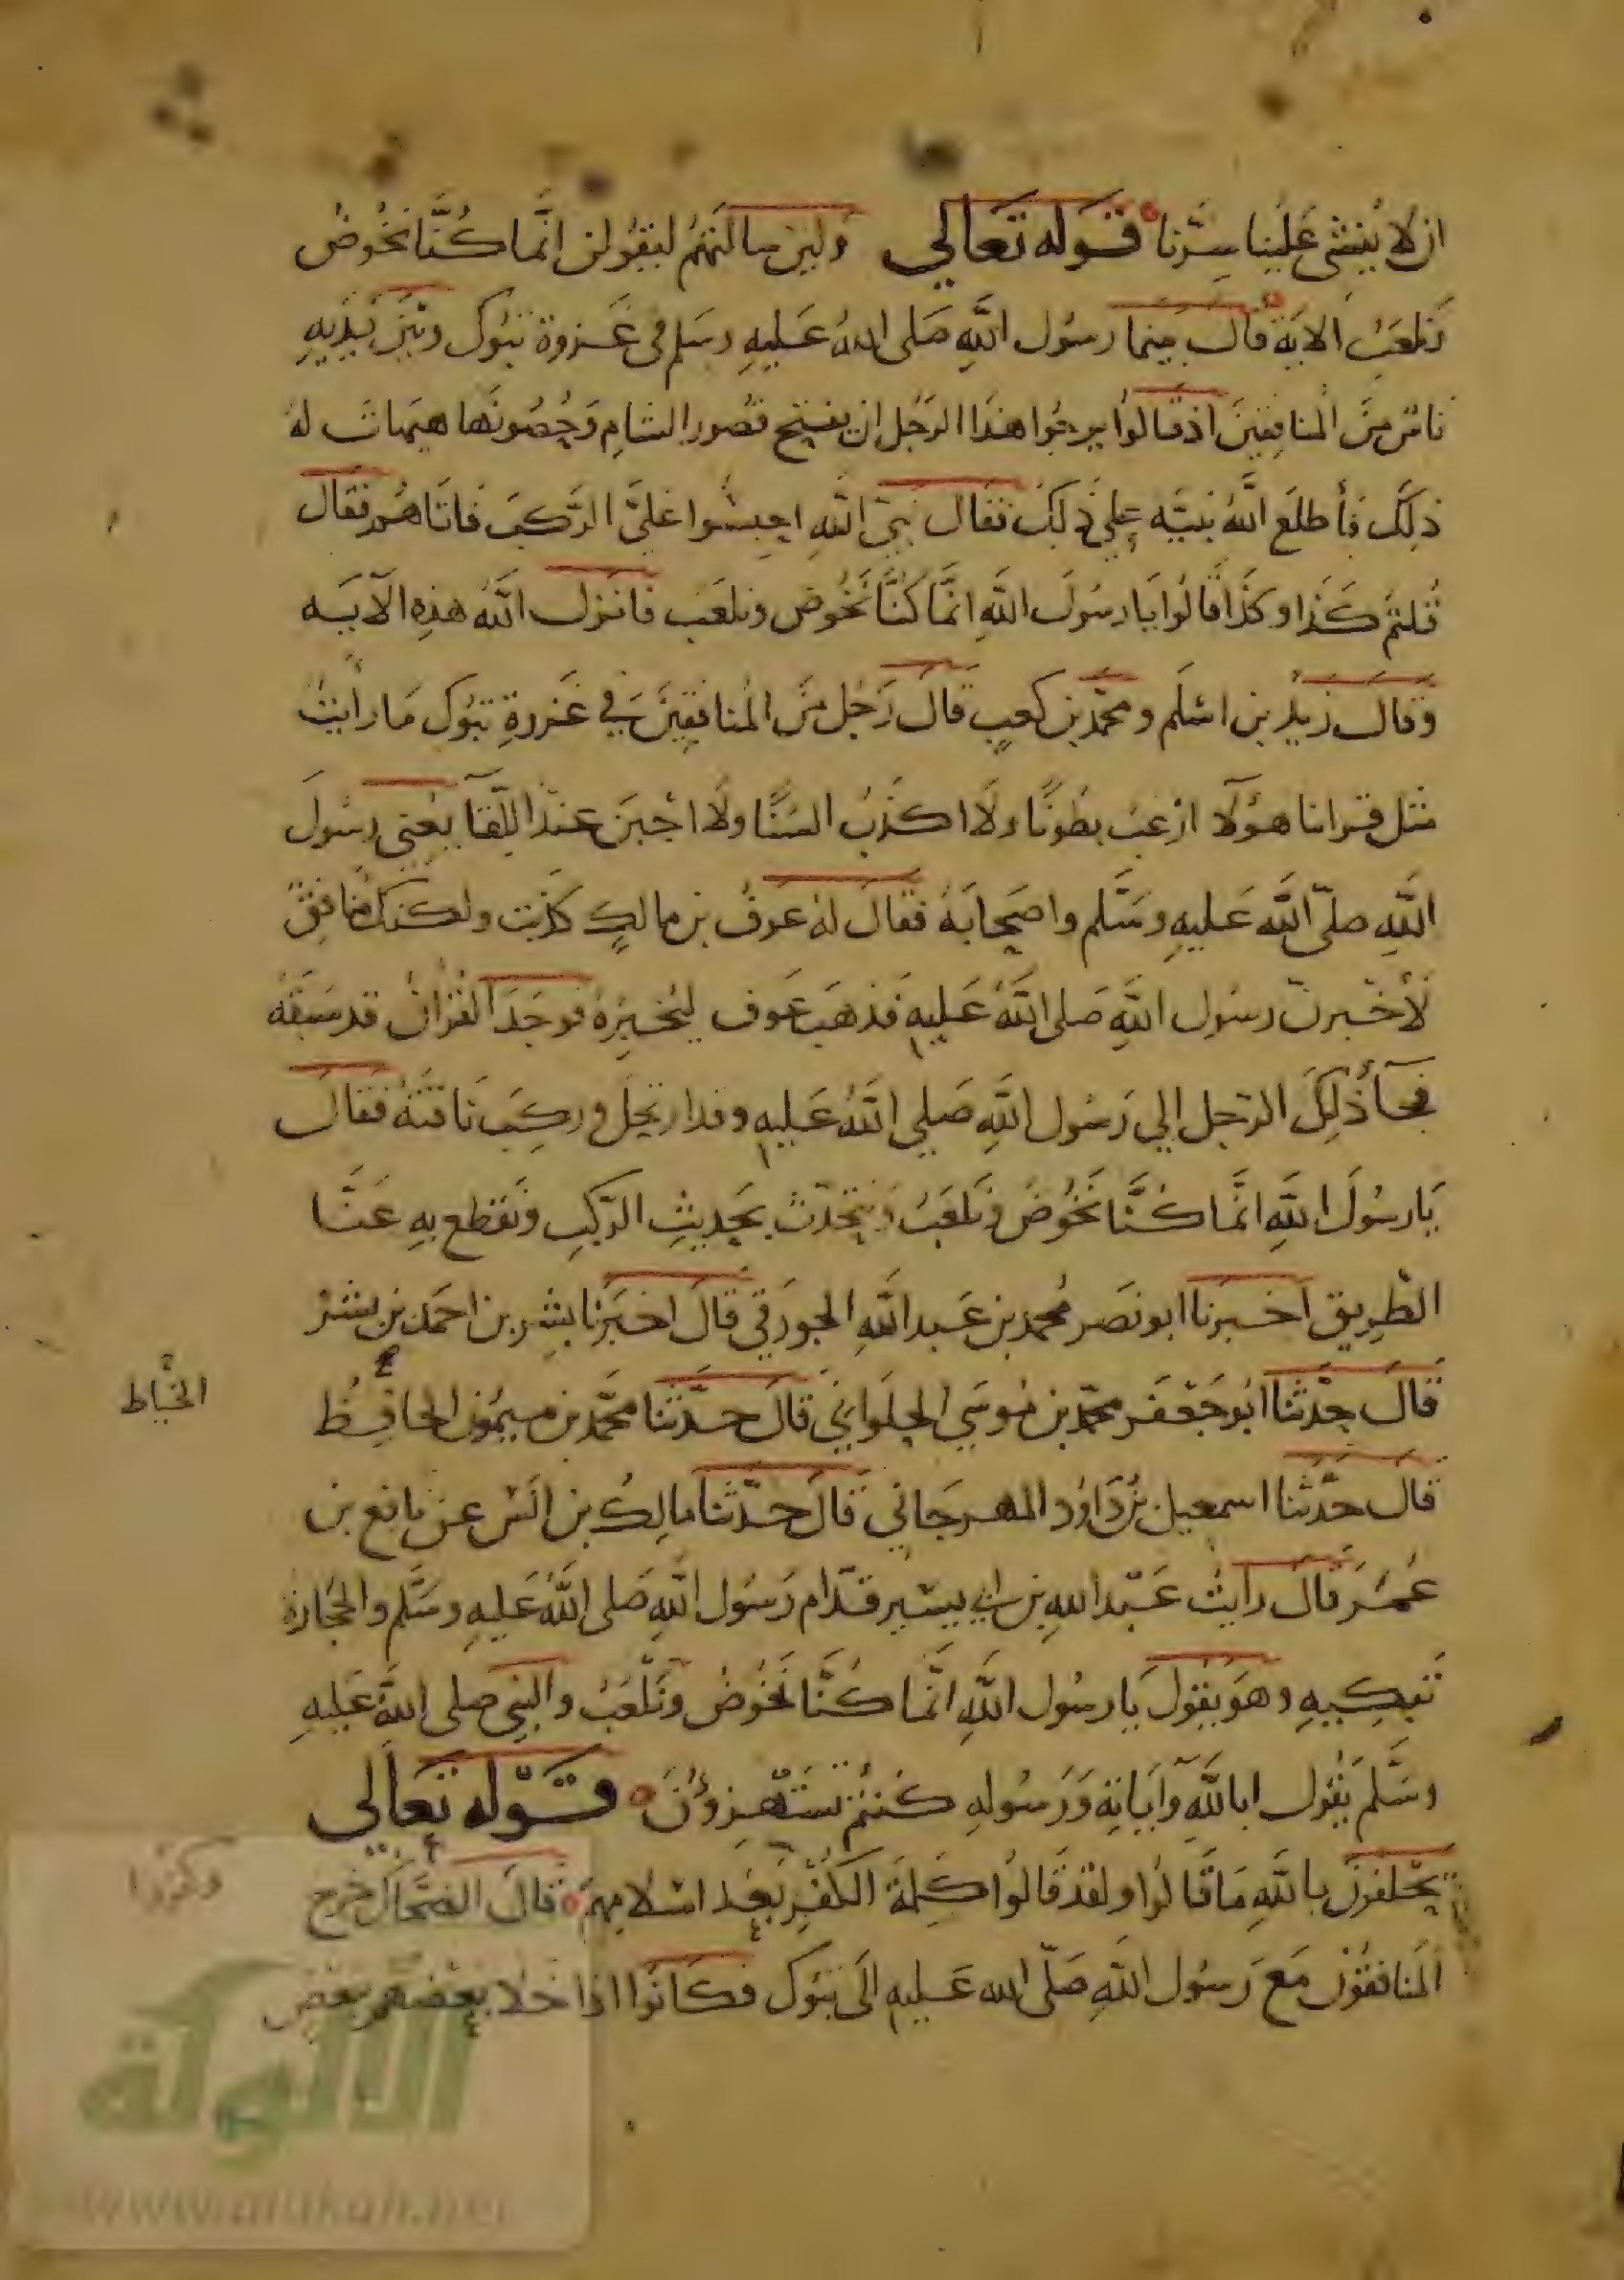 ان لا يفشى علينا سرنا قوله تعالي ولين سالتهم ليقولن انما كنا نخوض
ونلعب الاية قال بينما رسول الله صلى الله عليه وسلم فى غزوة تبوك وبين يديه
ناس من المنافقين اذ قالوا يرجوا هذا الرجل ان يفتح قصور الشام وحصونها هيهات له
ذلك فأطلع الله نبيه على ذلك فقال نبي الله احبسوا على الركب فاتاهم فقال
قلتم كذا وكذا قالوا يا رسول الله انما كنا نخوض ونلعب فانزل الله هذه الآيه
وقال زيد بن اسلم ومحمد بن كعب قال رجل من المنافقين في غزوة تبوك ما رايت
مثل قراننا هؤلآ ارغب بطونا ولا اكذب السنا ولا اجبن عند اللقآ يعنى رسول
الله صلى الله عليه وسلم واصحابه فقال له عوف بن مالك كذبت ولكنك منافق
لأخبرن رسول الله صلى الله عليه فذهب عوف ليخبره فوجد القرآن قد سبقه
فجآ ذلك الرجل الي رسول الله صلي الله عليه وقد ارتحل وركب ناقته فقال
يا رسول الله انما كنا نخوض ونلعب ونتحدث بحديث الركب ونقطع به عنا
الطريق اخبرنا ابو نصر محمد بن عبد الله الجوزقي قال اخبرنا بشر بن احمد بن بشر
قال حدثنا ابو جعفر محمد بن موسي الحلواني قال حدثنا محمد بن ميمون الحافظ
الخياط
قال حدثنا اسمعيل بن داود المهرجاني قال حدثنا مالك بن انس عن نافع بن
عمر قال رايت عبد الله بن ابي يسير قدام رسول الله صلى الله عليه وسلم والحجارة
تنكبه وهو يقول يا رسول الله انما كنا نخوض ونلعب والنبي صلى الله عليه
وسلم يقول ابالله وآياته ورسوله كنتم تستهزؤن قوله تعالي
يحلفون بالله ما قالوا ولقد قالوا كلمة الكفر بعد اسلامهم قال الضحاك خرج
وكفروا
المنافقون مع رسول الله صلى الله عليه الى تبوك فكانوا اذا خلا بعضهم ببعض
الألوكة
www.alukah.net